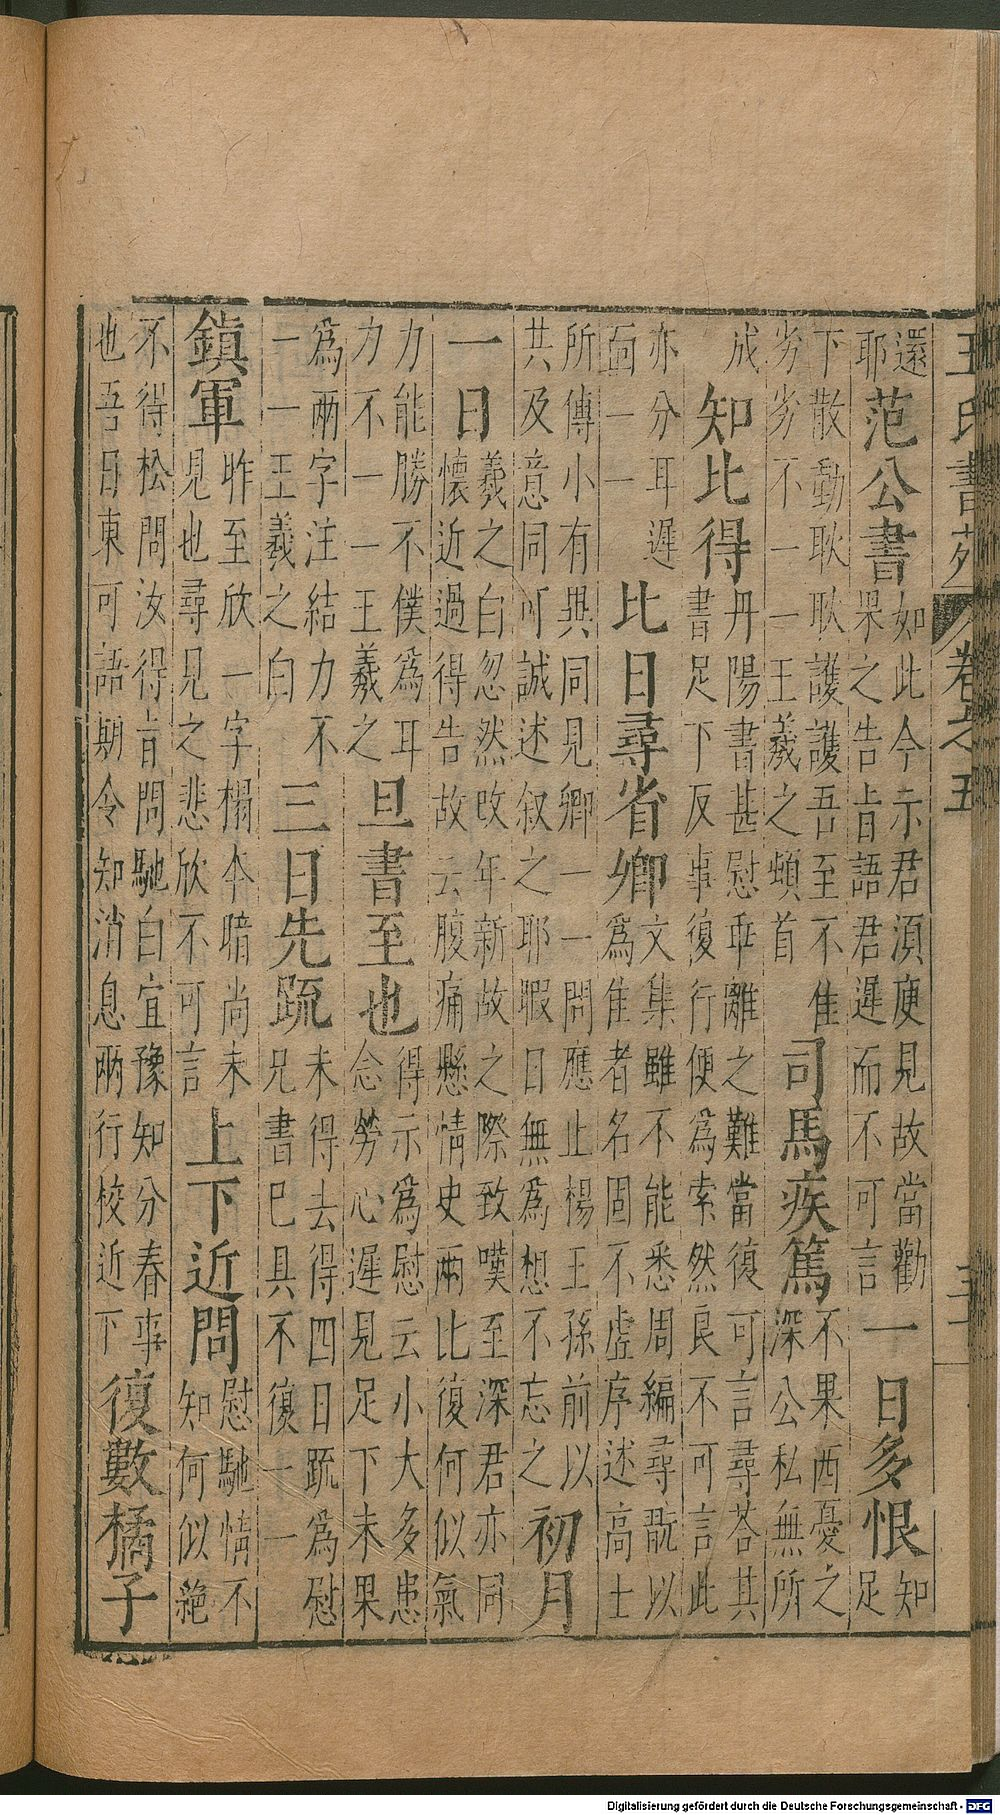 王氏書苑 卷之五
還耶范公書如此今示君湏庾見故當勸果之告㫖語君遲而不可言一日多恨知足
下散動耿耿護護吾至不隹劣劣不一一王羲之頓首司馬疾篤不果西憂之深公私無所
成知比得丹陽書甚慰乖離之難當復可言尋荅其書足下反事復行便爲索然良不可言此
亦分耳遲面一一比日尋省卿文集雖不能悉周編尋翫以爲隹者名固不虛序述高士
所傳小有與同見卿一一問應止楊王孫前以共及意同可誠述叙之耶暇日無爲想不忘之初月
一日羲之白忽然改年新故之際致嘆至深君亦同懷近過得告故云腹痛懸情史兩比復何似氣
力能勝不僕爲耳力不一一王羲之旦書至也得示爲慰云小大多患念勞心遲見足下未果
爲兩字注結力不一一王羲之白三日先䟽未得去得四日䟽爲慰兄書已具不復一一
鎮軍昨至欣一字榻本暗尚未見也尋見之悲欣不可言上下近問慰馳情不知何似絕
不得松問汝得㫖問馳白宜豫知分春事也吾日東可語期令知消息兩行校近下復數橘子
Digitalisierung gefördert durch die Deutsche Forschungsgemeinschaft - DFG